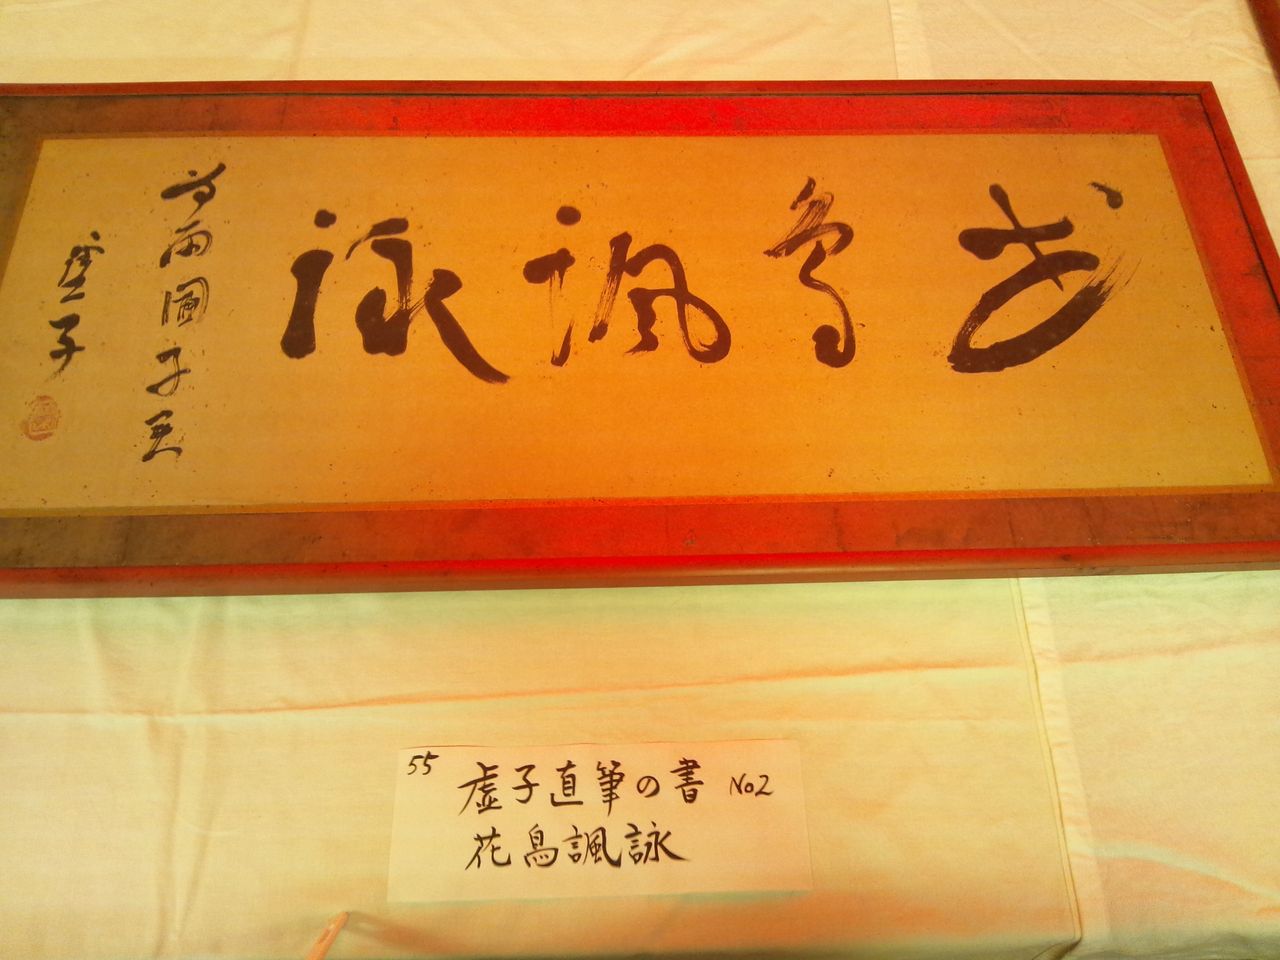 花鳥諷詠
為雨圃子
虚子
55 虚子直筆の書 No2
花鳥諷詠